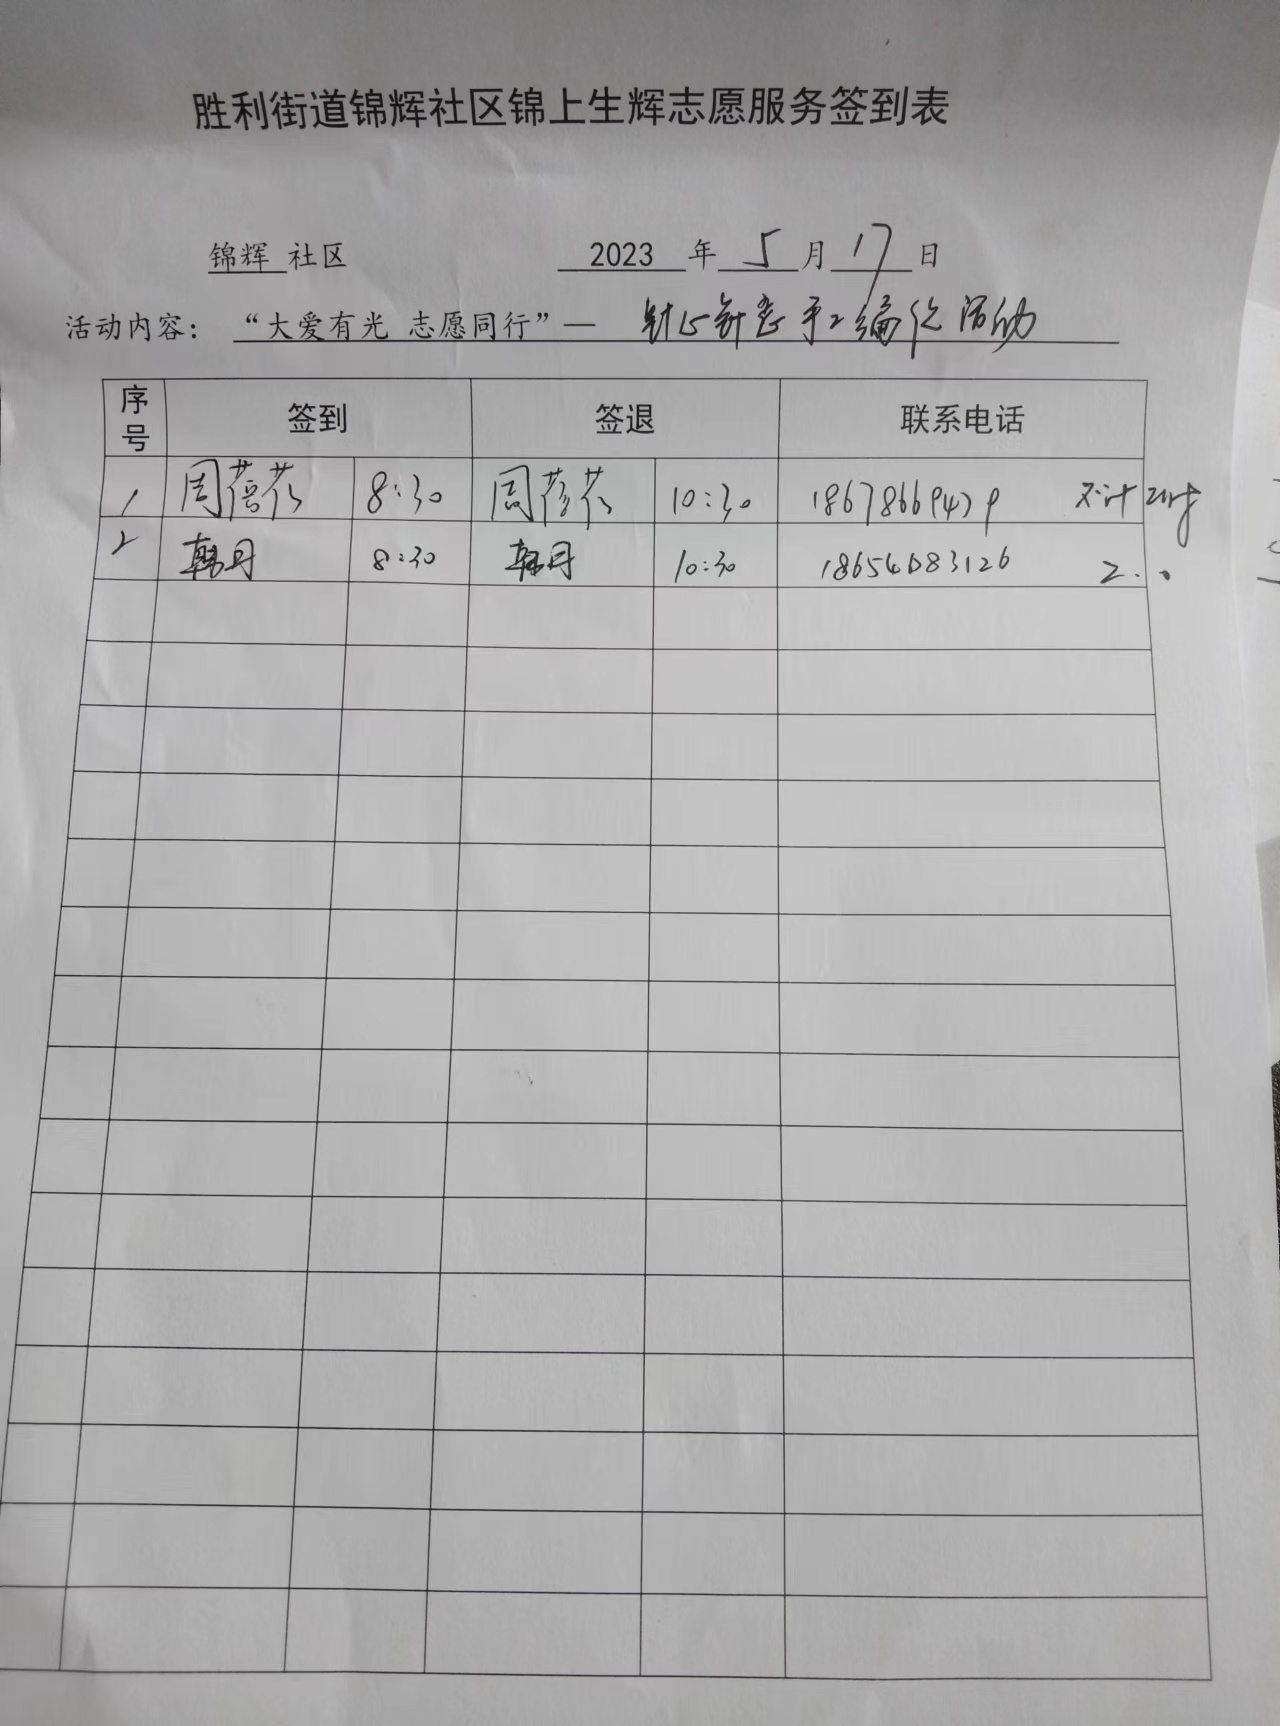 胜利街道锦辉社区锦上生辉志愿服务签到表
锦辉 社区 2023 年 5 月 17 日
活动内容： “大爱有光 志愿同行”— 针心针意手工编织活动
序号 签到 签退 联系电话
1 周蓓花 8:30 周花 10:30 18678669479 共计2小时
2 韩月 8:30 韩月 10:30 18654683126 2..